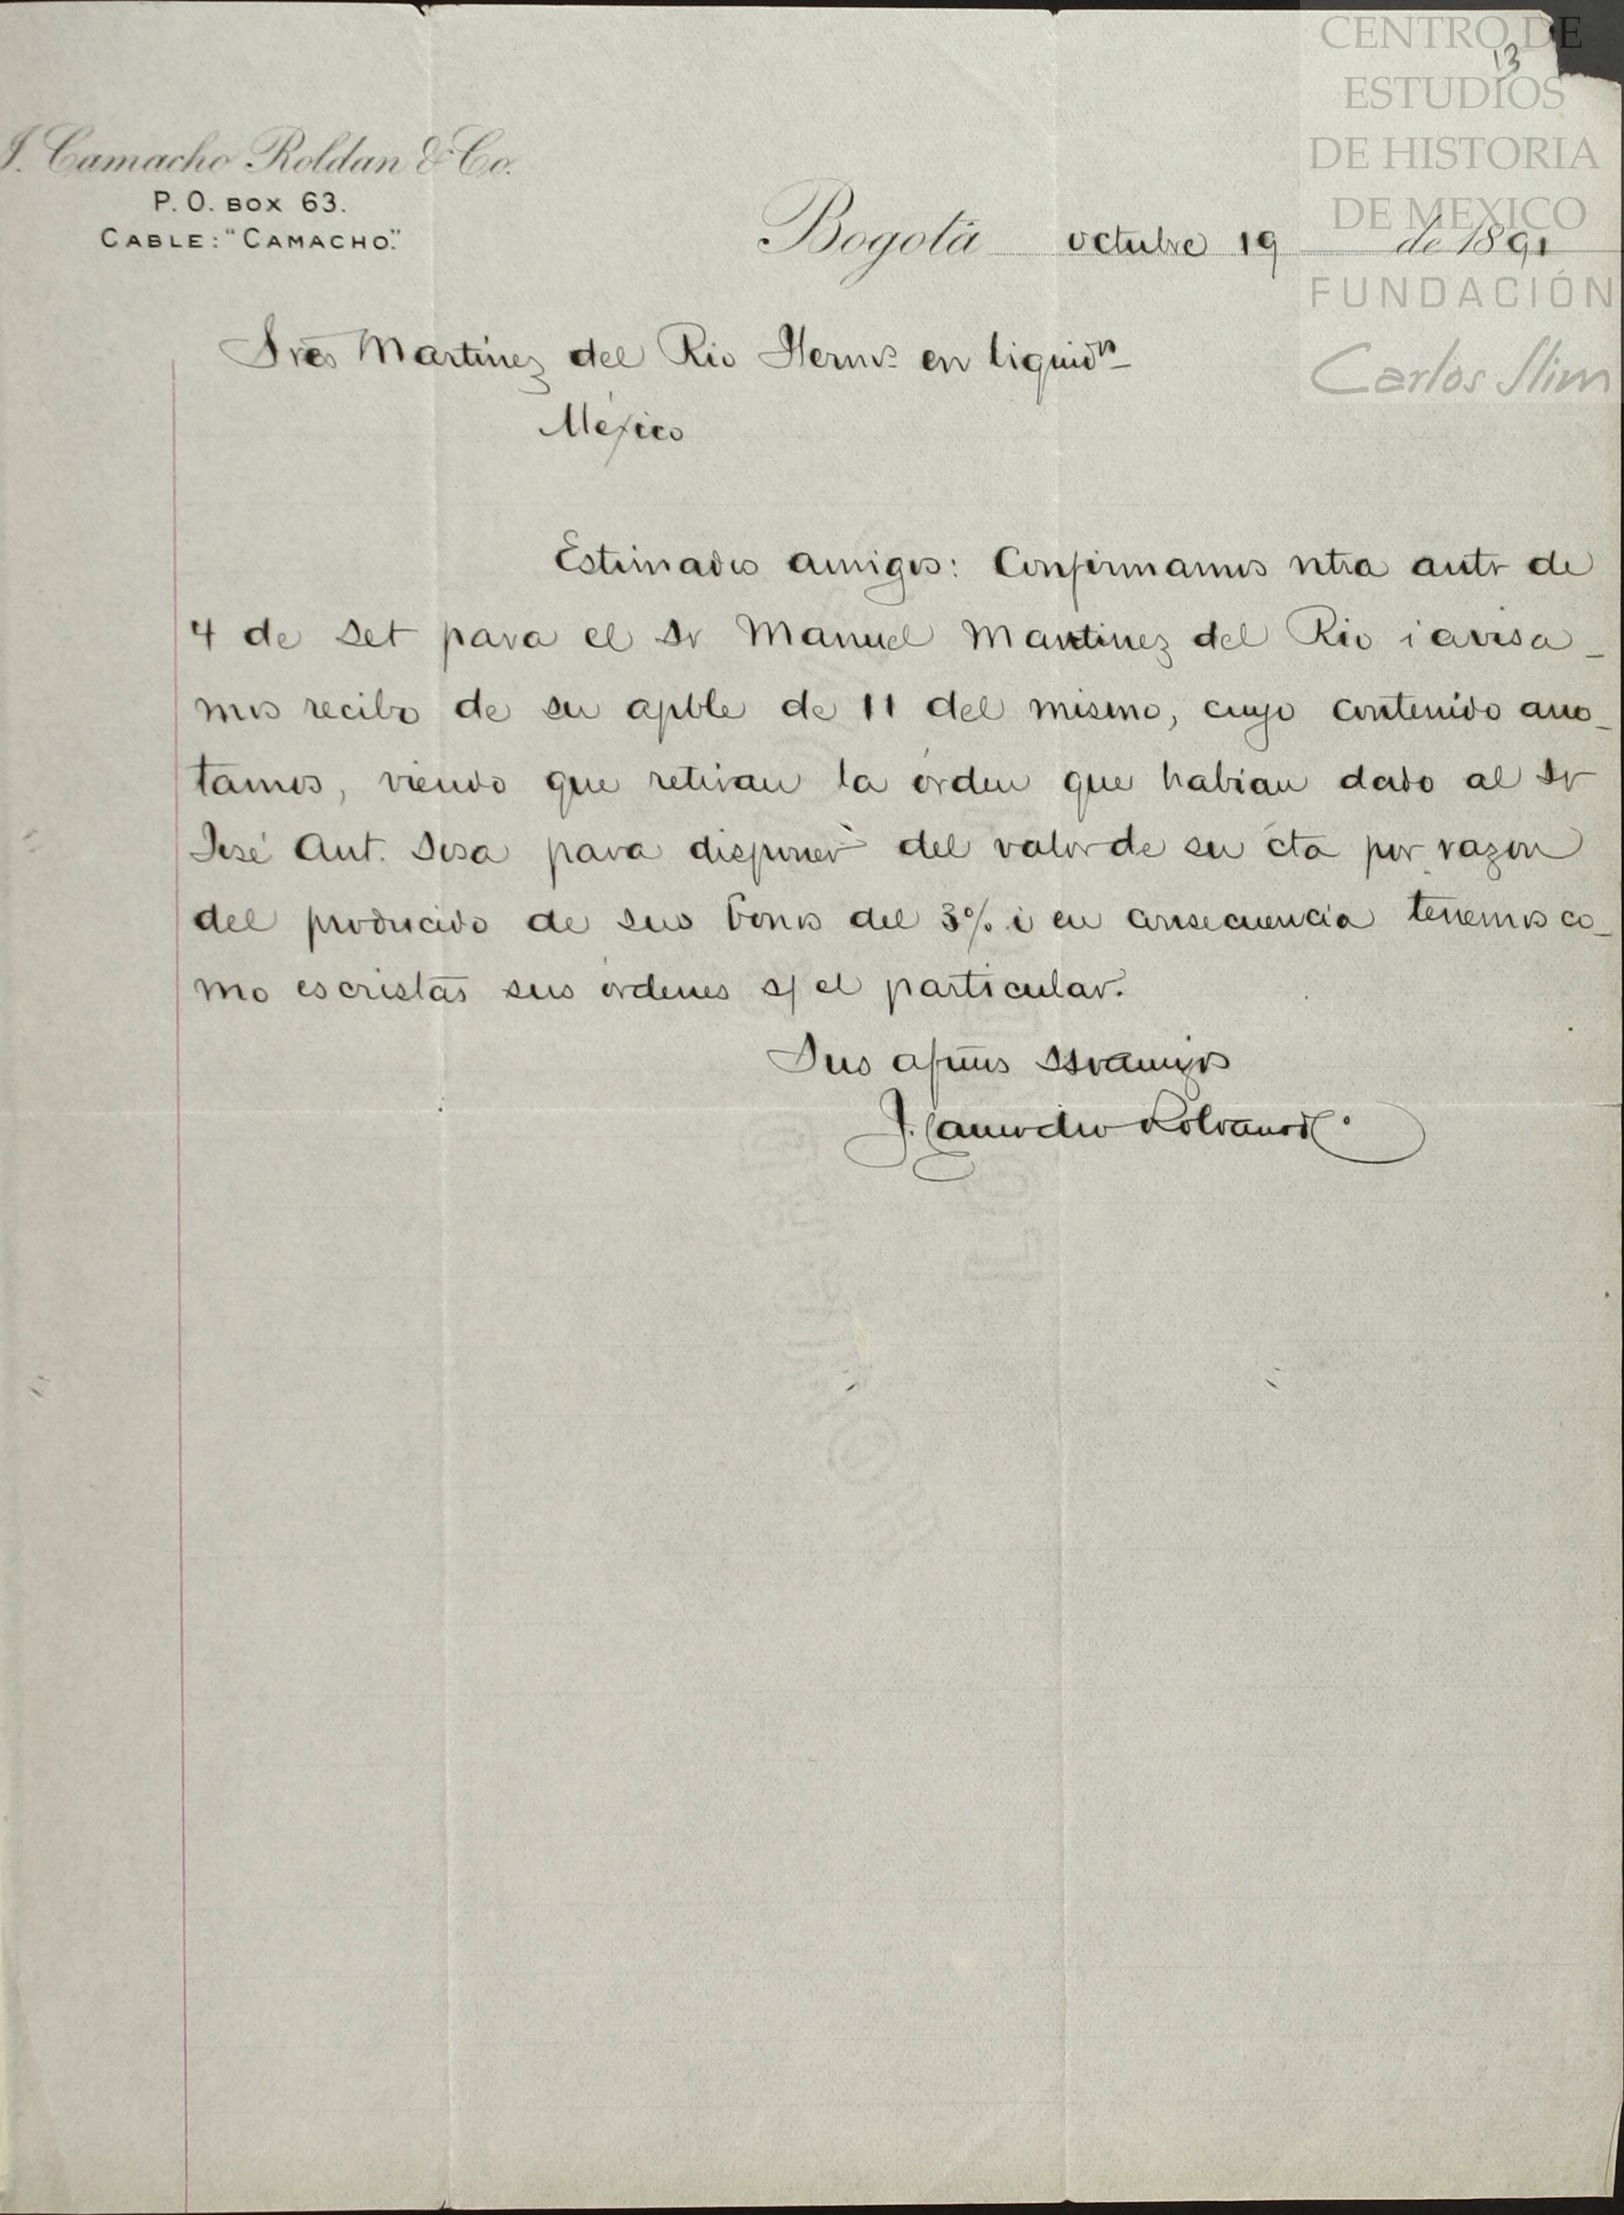 13
CENTRO DE
ESTUDIOS
DE HISTORIA
DE MEXICO
FUNDACIÓN
Carlos Slim
J. Camacho Roldan & Co.
P. O. BOX 63.
CABLE: "CAMACHO."
Bogotá octubre 19 de 1891
Sres Martinez del Rio Hermos en liquidn
México
Estimados amigos: Confirmamos ntra antr de
4 de Set para el Sr Manuel Martinez del Rio i avisa_
mos recibo de su apble de 11 del mismo, cuyo contenido ano_
tamos, viendo que retiran la órden que habian dado al Sr
José Ant. Sosa para disponer del valor de su cta por razon
del producido de sus bonos del 3% i en consecuencia tenemos co_
mo escristas sus órdenes s/ el particular.
Sus afmos SS i amigos
J. Camacho Roldan & C.